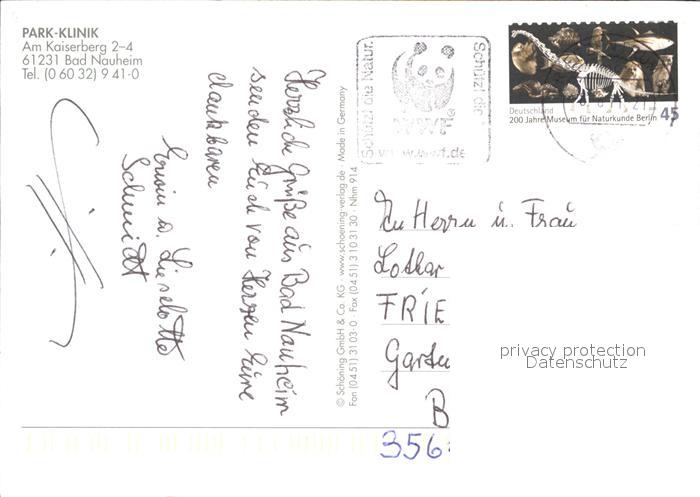 PARK-KLINIK
Am Kaiserberg 2-4
61231 Bad Nauheim
Tel. (0 60 32) 9 41-0
Herzliche Grüße aus Bad Nauheim
senden Euch von Herzen Eure
dankbaren
Erwin u. Lieselotte
Schmidt
© Schöning GmbH & Co. KG · www.schoening-verlag.de · Made in Germany
Fon (0451) 31 03-0 · Fax (0451) 3 10 31 30 · Nhm 914
Schützt die Natur.
Schützt die
WWF
www.wwf.de
Deutschland
200 Jahre Museum für Naturkunde Berlin
45
An Herrn u. Frau
Lothar
FRIE
Garten
B
356
privacy protection
Datenschutz